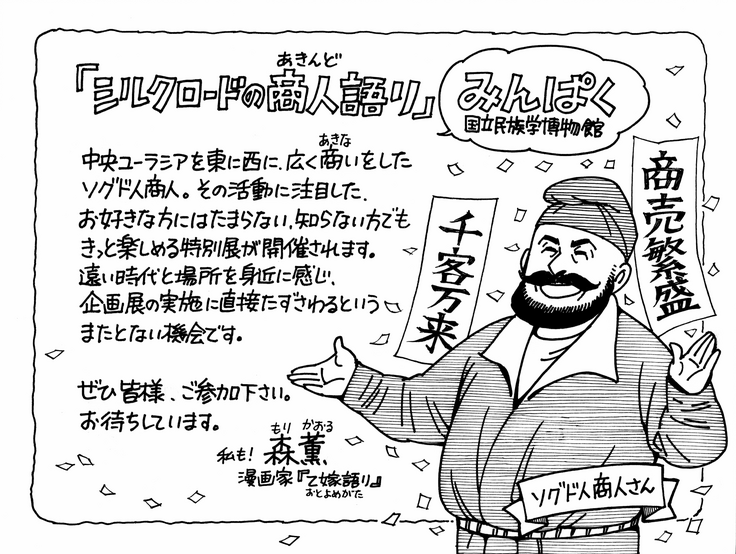 あきんど
「シルクロードの商人語り」
みんぱく
国立民族学博物館
あきな
中央ユーラシアを東に西に、広く商いをした
ソグド人商人。その活動に注目した、
お好きな方にはたまらない、知らない方でも
きっと楽しめる特別展が開催されます。
遠い時代と場所を身近に感じ、
企画展の実施に直接たずさわるという
またとない機会です。
ぜひ皆様、ご参加下さい。
お待ちしています。
もり かおる
私も! 森薫
漫画家『乙嫁語り』
おとよめがたり
千客万来
商売繁盛
ソグド人商人さん